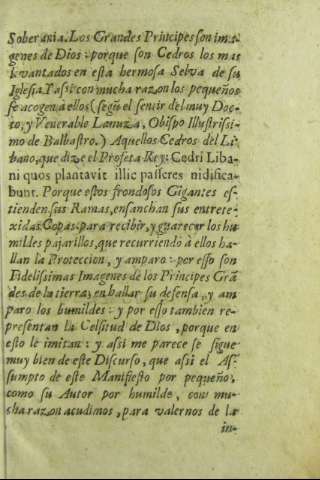 Soberania. Los Grandes Principes son ima-
genes de Dios: porque son Cedros los mas
levantados en esta hermosa Selva de su
Iglesia. Y assi con mucha razon los pequeños
se acogen a ellos (segũ el sentir del muy Doc-
to, y Venerable Lanuza, Obispo Illustrissi-
mo de Balbastro.) Aquellos Cedros del Li-
bano, que dize el Profeta Rey: Cedri Liba-
ni quos plantavit illic passeres nidifica-
bunt. Porque estos frondosos Gigantes es-
tienden sus Ramas, ensanchan sus entrete-
xidas Copas para recibir, y guarecer los hu
mildes pajarillos, que recurriendo à ellos ha-
llan la Proteccion, y amparo: per esso son
Fidelissimas Imagenes de los Principes Grã
des de la tierra, en hallar su defensa, y am
paro los humildes: y por esso tambien re-
presentan la Celsitud de Dios, porque en
esto le imitan: y assi me parece se sigue
muy bien de este Discurso, que assi el As-
sumpto de este Manifiesto por pequeño,
como su Autor por humilde, con mu-
cha razon acudimos, para valernos de la
in-